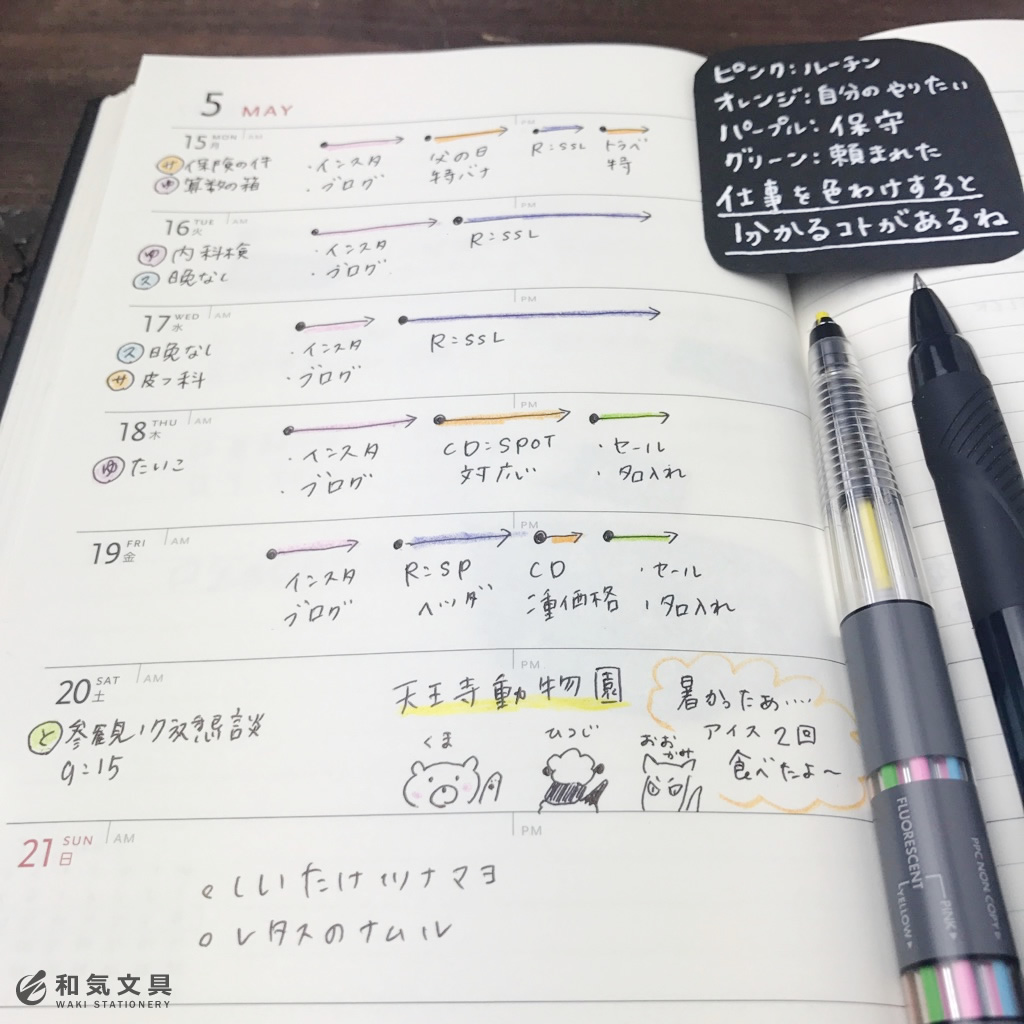 5 MAY
ピンク:ルーチン
オレンジ:自分のやりたい
パープル:保守
グリーン:頼まれた
仕事を色わけすると
分かるコトがあるね
15 MON 月 AM PM
サ 保険の件
ゆ 算数の箱
・インスタ
・ブログ
父の日
特バナ
R:SSL
トラベ
特
16 TUE 火 AM PM
ゆ 内科検
ス 日免なし
・インスタ
・ブログ
R:SSL
17 WED 水 AM PM
ス 日免なし
サ 皮フ科
・インスタ
・ブログ
R:SSL
18 THU 木 AM PM
ゆ たいこ
・インスタ
・ブログ
CD:SPOT
対応
・セール
・名入れ
19 FRI 金 AM PM
インスタ
ブログ
R:SP
ヘッダ
CD
二重価格
・セール
・名入れ
20 SAT 土 AM PM
と 参観/放懇談
9:15
天王寺動物園
くま
ひつじ
おおかみ
暑かったぁ‥‥
アイス2回
食べたよ〜
21 SUN 日 AM PM
しいたけツナマヨ
レタスのナムル
FLUORESCENT
PINK
YELLOW
PPC NON COPY
和気文具
WAKI STATIONERY